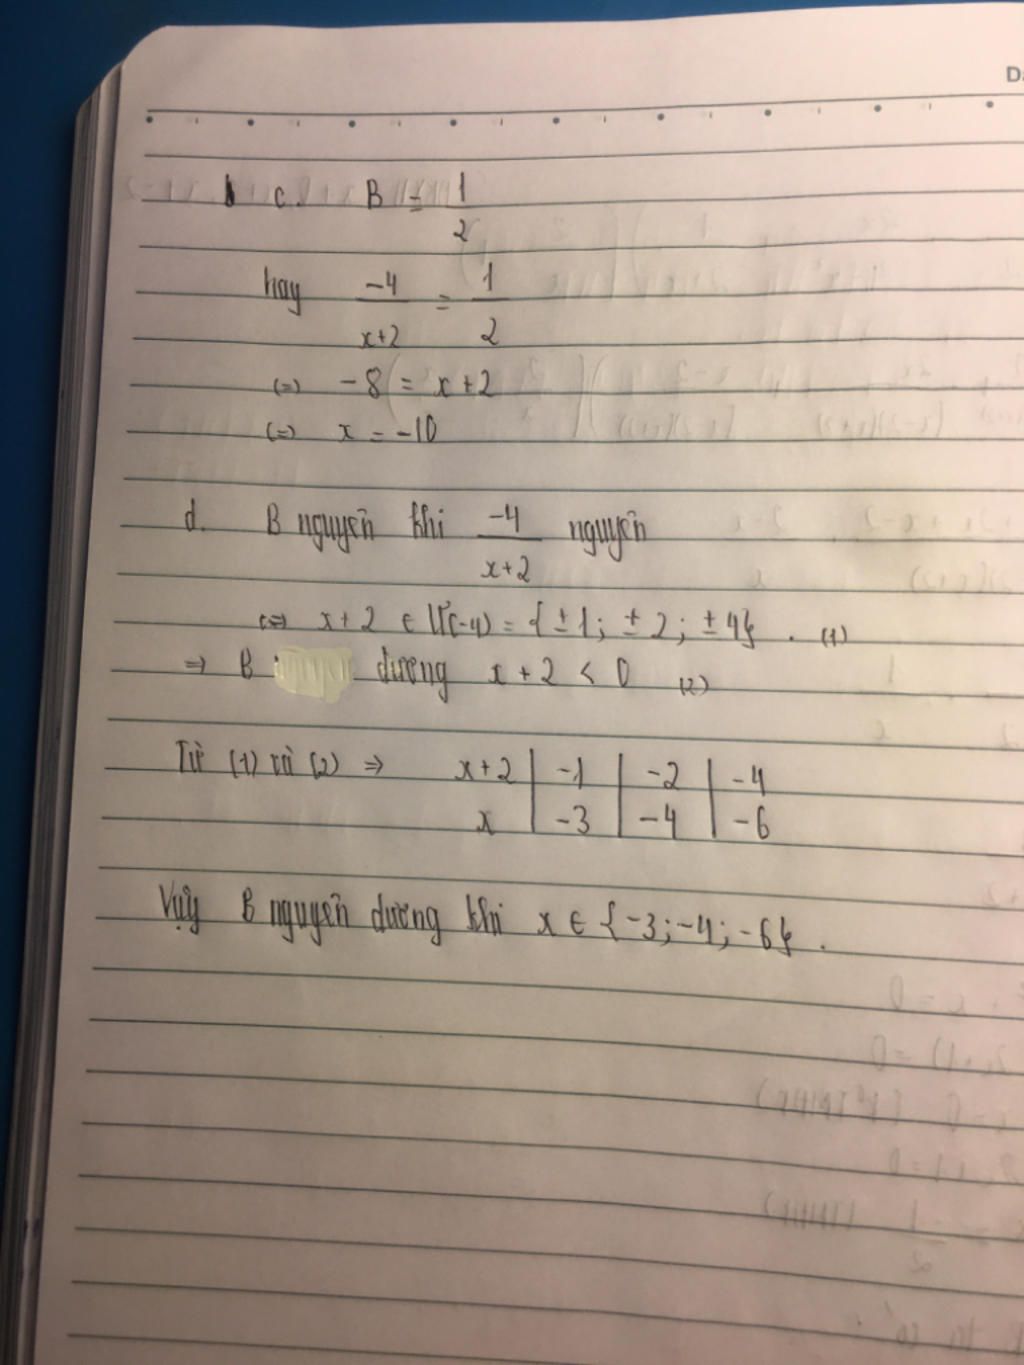 c. B = 1/2
hay -4/(x+2) = 1/2
(=) -8 = x+2
(=) x = -10
d. B nguyên khi -4/(x+2) nguyên
<=> x+2 ∈ Ư(-4) = {±1; ±2; ±4}. (1)
=> B dương x+2 < 0 (2)
Từ (1) và (2) => x+2 | -1 | -2 | -4
x | -3 | -4 | -6
Vậy B nguyên dương khi x ∈ {-3; -4; -6}.